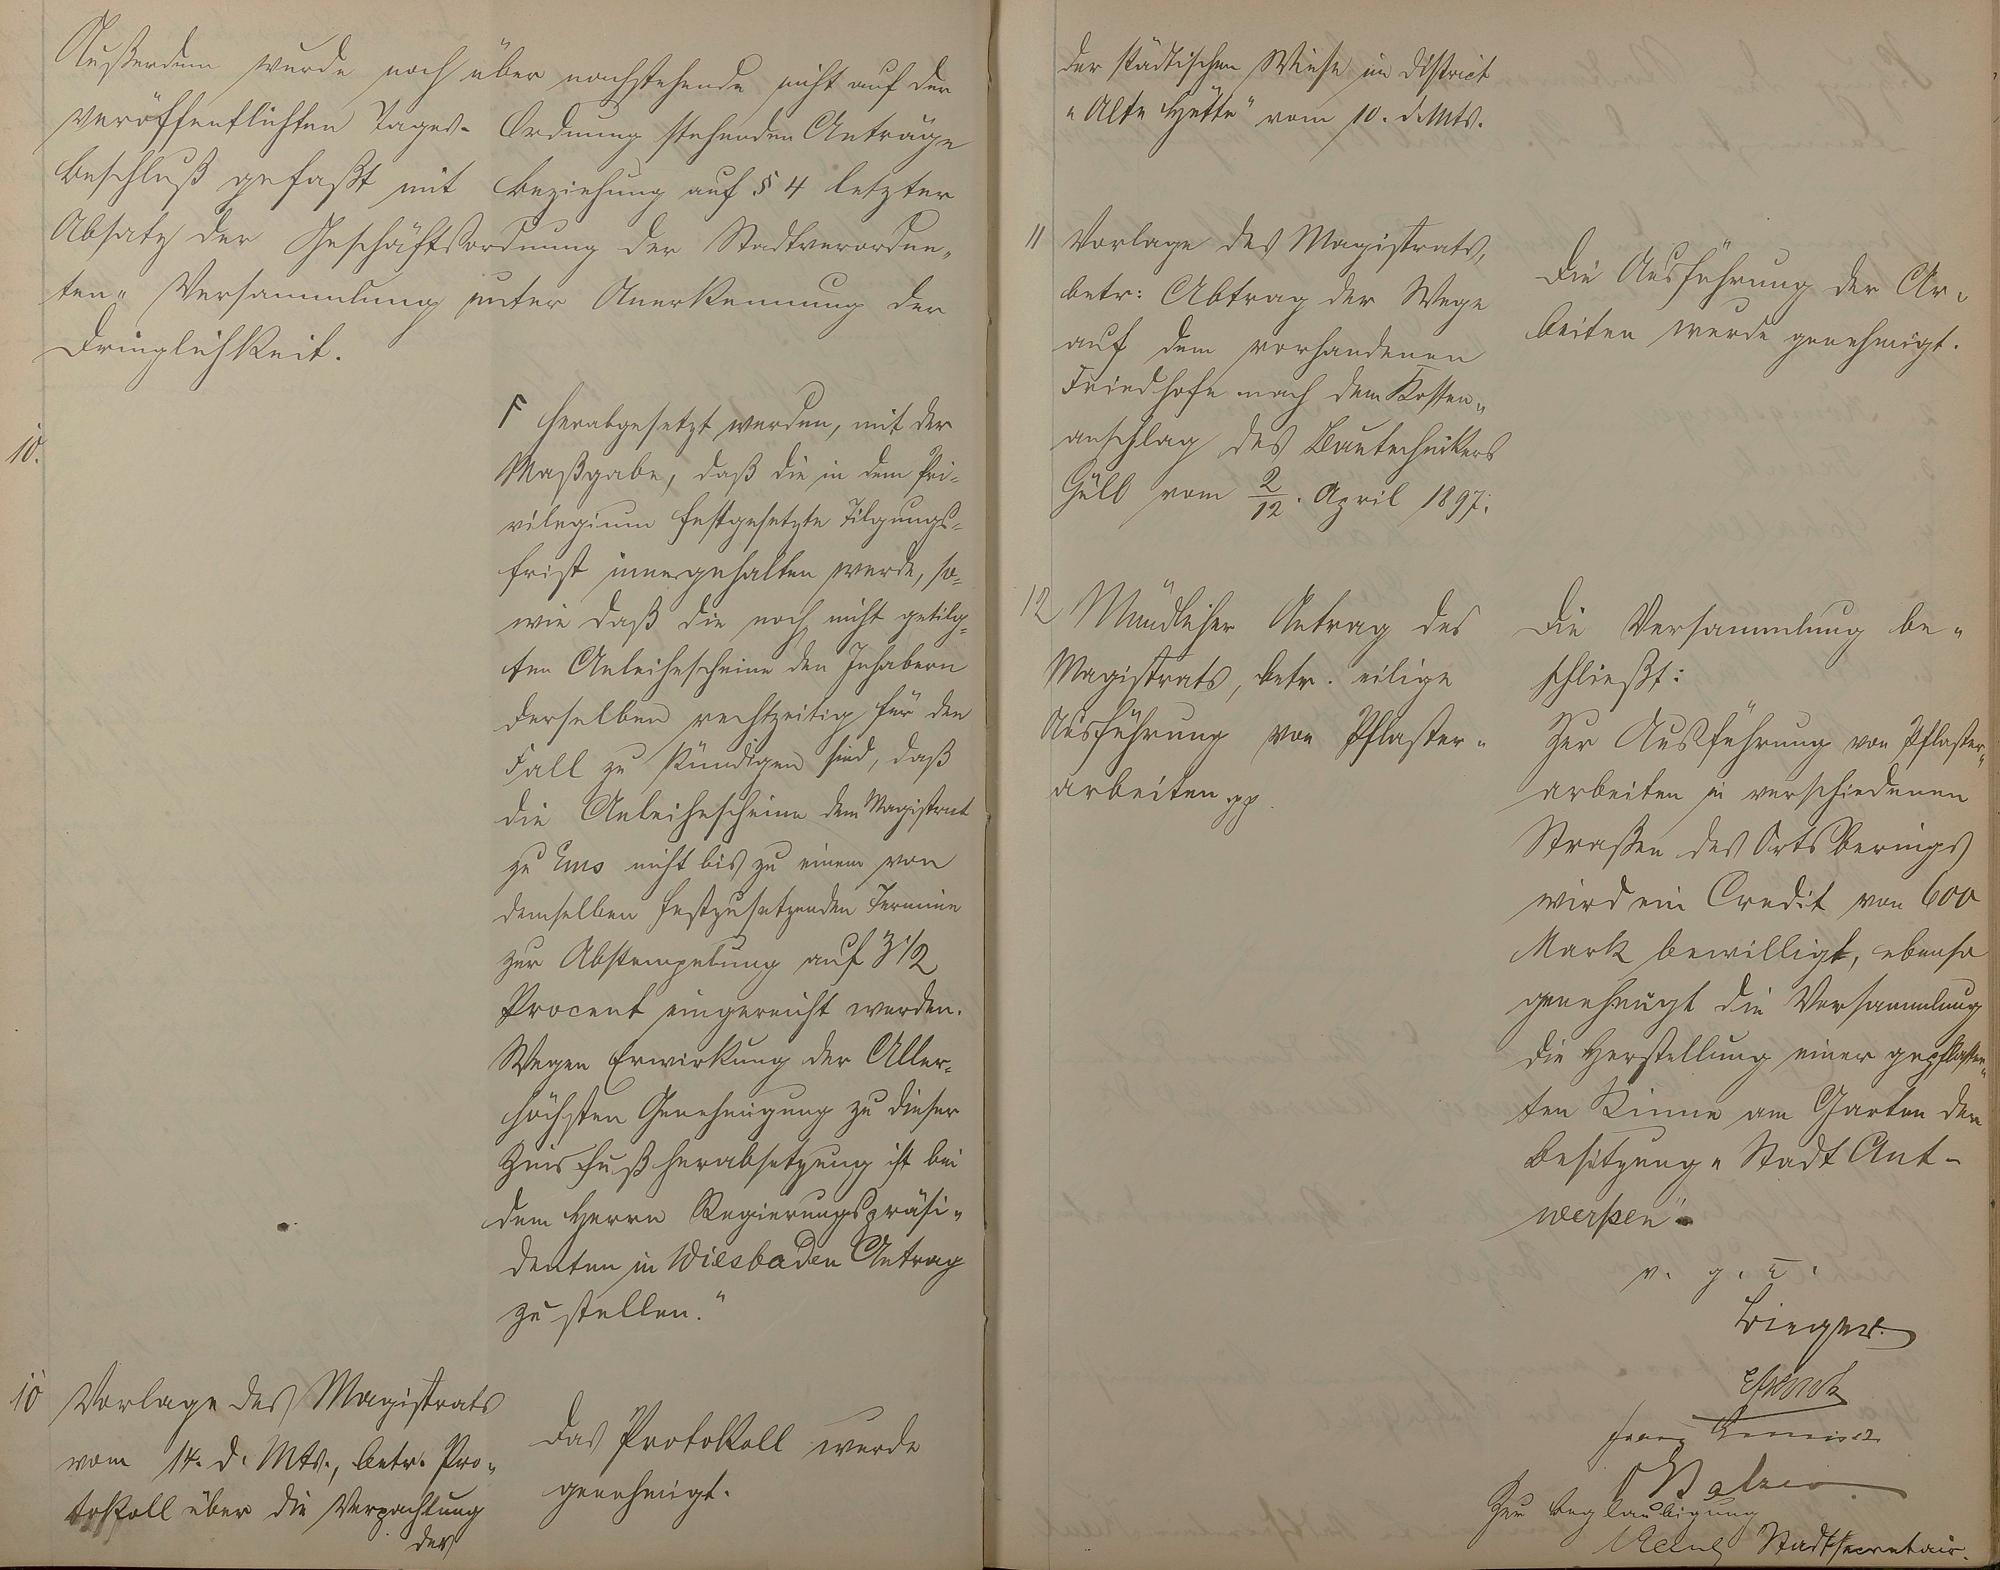 Außerdem wurde noch über nachstehende nicht auf der
veröffentlichten Tages- Ordnung stehenden Anträge
Beschluß gefaßt mit Beziehung auf § 4 letzter
Absatz der Geschäftsordnung der Stadtverordne„
ten„ Versammlung unter Anerkennung der
Dringlichkeit.
10.
F herabgesetzt werden, mit der
Maßgabe, daß die in dem Pri-
vilegium festgesetzte Tilgungs-
frist innegehalten werde, so-
wie daß die noch nicht getilg-
ten Anleihescheine den Inhabern
derselben rechtzeitig für den
Fall zu kündigen sind, daß
die Anleihescheine dem Magistrat
zu Ems nicht bis zu einem von
demselben festzusetzenden Termine
zur Abstempelung auf 3 1/2
Procent eingereicht werden.
Wegen Erwirkung der Aller-
höchsten Genehmigung zu dieser
Zinsfußherabsetzung ist bei
dem Herrn Regierungspräsi„
denten in Wiesbaden Antrag
zu stellen."
10 Vorlage des Magistrats
vom 14. d. Mts., betr. Pro„
tokoll über die Verpachtung
der
Das Protokoll wurde
genehmigt.
der städtischen Wiese im District
„Alte Hütte" vom 10. d. Mts.
11 Vorlage des Magistrats,
betr: Abtrag der Wege
auf dem vorhandenen
Friedhofe nach dem Kosten„
anschlag des Bautechnikers
Güll vom 2/12. April 1897.
Die Ausführung der Ar„
beiten wurde genehmigt.
12 Mündlicher Antrag des
Magistrats, betr. eilige
Ausführung von Pflaster„
arbeiten pp
Die Versammlung be„
schließt:
Zur Ausführung von Pflaster„
arbeiten in verschiedenen
Straßen des Ortsberings
wird ein Credit von 600
Mark bewilligt, ebenso
genehmigt die Versammlung
die Herstellung einer gepflaster„
ten Rinne am Garten der
Besitzung „Stadt Ant-
werpen".
v. g. u.
Franz
Zur Beglaubigung
Stadtsecretair.